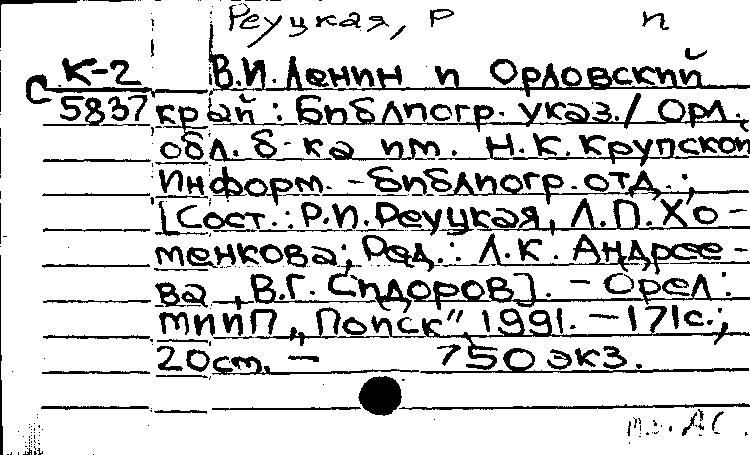 Реуцкая, Р И
С К-2 В.И. Ленин и Орловский
5837 край : Библиогр. указ. / Орл.
обл. б-ка им. Н.К. Крупской
Информ.-библиогр. отд.;
[Сост.: Р.И. Реуцкая, Л.П. Хо-
менкова; Ред.: Л.К. Андрее-
ва, В.Г. Сидоров]. - Орел:
МИИП „Поиск", 1991. - 171с.;
20см. - 750 экз.